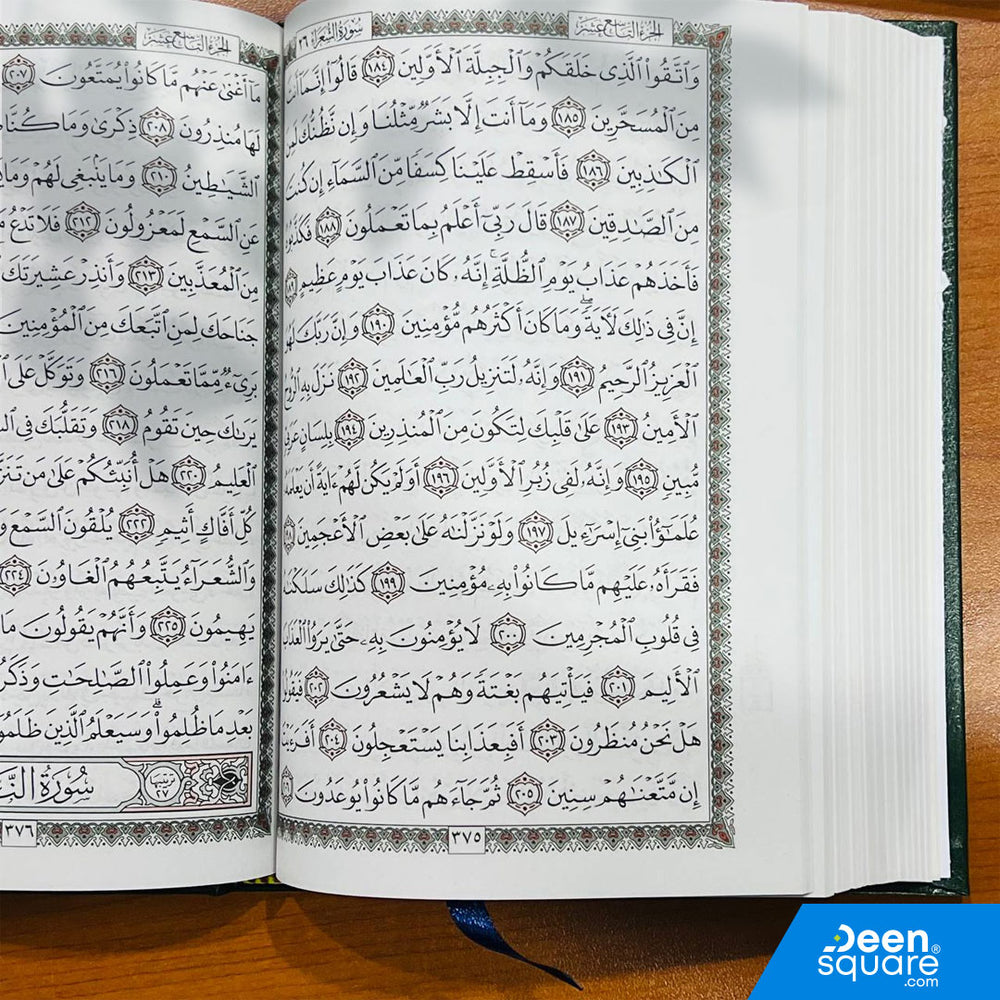 الجزء التاسع عشر
سورة الشعراء ٢٦
وَاتَّقُوا الَّذِى خَلَقَكُمْ وَالْجِبِلَّةَ الْأَوَّلِينَ ١٨٤ قَالُوٓا إِنَّمَآ أَنتَ
مِنَ الْمُسَحَّرِينَ ١٨٥ وَمَآ أَنتَ إِلَّا بَشَرٌ مِّثْلُنَا وَإِن نَّظُنُّكَ لَمِنَ
الْكَٰذِبِينَ ١٨٦ فَأَسْقِطْ عَلَيْنَا كِسَفًا مِّنَ السَّمَآءِ إِن كُنتَ
مِنَ الصَّٰدِقِينَ ١٨٧ قَالَ رَبِّىٓ أَعْلَمُ بِمَا تَعْمَلُونَ ١٨٨ فَكَذَّبُوهُ
فَأَخَذَهُمْ عَذَابُ يَوْمِ الظُّلَّةِ ۚ إِنَّهُۥ كَانَ عَذَابَ يَوْمٍ عَظِيمٍ ١٨٩
إِنَّ فِى ذَٰلِكَ لَأٓيَةً ۖ وَمَا كَانَ أَكْثَرُهُم مُّؤْمِنِينَ ١٩٠ وَإِنَّ رَبَّكَ لَهُوَ
الْعَزِيزُ الرَّحِيمُ ١٩١ وَإِنَّهُۥ لَتَنزِيلُ رَبِّ الْعَٰلَمِينَ ١٩٢ نَزَلَ بِهِ الرُّوحُ
الْأَمِينُ ١٩٣ عَلَىٰ قَلْبِكَ لِتَكُونَ مِنَ الْمُنذِرِينَ ١٩٤ بِلِسَانٍ عَرَبِىٍّ
مُّبِينٍ ١٩٥ وَإِنَّهُۥ لَفِى زُبُرِ الْأَوَّلِينَ ١٩٦ أَوَلَمْ يَكُن لَّهُمْ ءَايَةً أَن يَعْلَمَهُۥ
عُلَمَٰٓؤُا بَنِىٓ إِسْرَٰٓءِيلَ ١٩٧ وَلَوْ نَزَّلْنَٰهُ عَلَىٰ بَعْضِ الْأَعْجَمِينَ ١٩٨
فَقَرَأَهُۥ عَلَيْهِم مَّا كَانُوا بِهِۦ مُؤْمِنِينَ ١٩٩ كَذَٰلِكَ سَلَكْنَٰهُ
فِى قُلُوبِ الْمُجْرِمِينَ ٢٠٠ لَا يُؤْمِنُونَ بِهِۦ حَتَّىٰ يَرَوُا الْعَذَابَ
الْأَلِيمَ ٢٠١ فَيَأْتِيَهُم بَغْتَةً وَهُمْ لَا يَشْعُرُونَ ٢٠٢ فَيَقُولُوا
هَلْ نَحْنُ مُنظَرُونَ ٢٠٣ أَفَبِعَذَابِنَا يَسْتَعْجِلُونَ ٢٠٤ أَفَرَءَيْتَ
إِن مَّتَّعْنَٰهُمْ سِنِينَ ٢٠٥ ثُمَّ جَآءَهُم مَّا كَانُوا يُوعَدُونَ ٢٠٦
٣٧٥
الجزء التاسع عشر
مَآ أَغْنَىٰ عَنْهُم مَّا كَانُوا يُمَتَّعُونَ ٢٠٧
لَهَا مُنذِرُونَ ٢٠٨ ذِكْرَىٰ وَمَا كُنَّا
الشَّيَٰطِينُ ٢١٠ وَمَا يَنۢبَغِى لَهُمْ وَمَا
عَنِ السَّمْعِ لَمَعْزُولُونَ ٢١٢ فَلَا تَدْعُ
مِنَ الْمُعَذَّبِينَ ٢١٣ وَأَنذِرْ عَشِيرَتَكَ
جَنَاحَكَ لِمَنِ اتَّبَعَكَ مِنَ الْمُؤْمِنِينَ
بَرِىٓءٌ مِّمَّا تَعْمَلُونَ ٢١٦ وَتَوَكَّلْ عَلَى
يَرَىٰكَ حِينَ تَقُومُ ٢١٨ وَتَقَلُّبَكَ فِى
الْعَلِيمُ ٢٢٠ هَلْ أُنَبِّئُكُمْ عَلَىٰ مَن
كُلِّ أَفَّاكٍ أَثِيمٍ ٢٢٢ يُلْقُونَ السَّمْعَ
وَالشُّعَرَآءُ يَتَّبِعُهُمُ الْغَاوُۥنَ ٢٢٤
يَهِيمُونَ ٢٢٥ وَأَنَّهُمْ يَقُولُونَ مَا
ءَامَنُوا وَعَمِلُوا الصَّٰلِحَٰتِ وَذَكَرُوا
بَعْدِ مَا ظُلِمُوا ۗ وَسَيَعْلَمُ الَّذِينَ ظَلَمُوٓا
ترتيبها ٢٧
سُورَةُ
٣٧٦
Deen
square®
.com